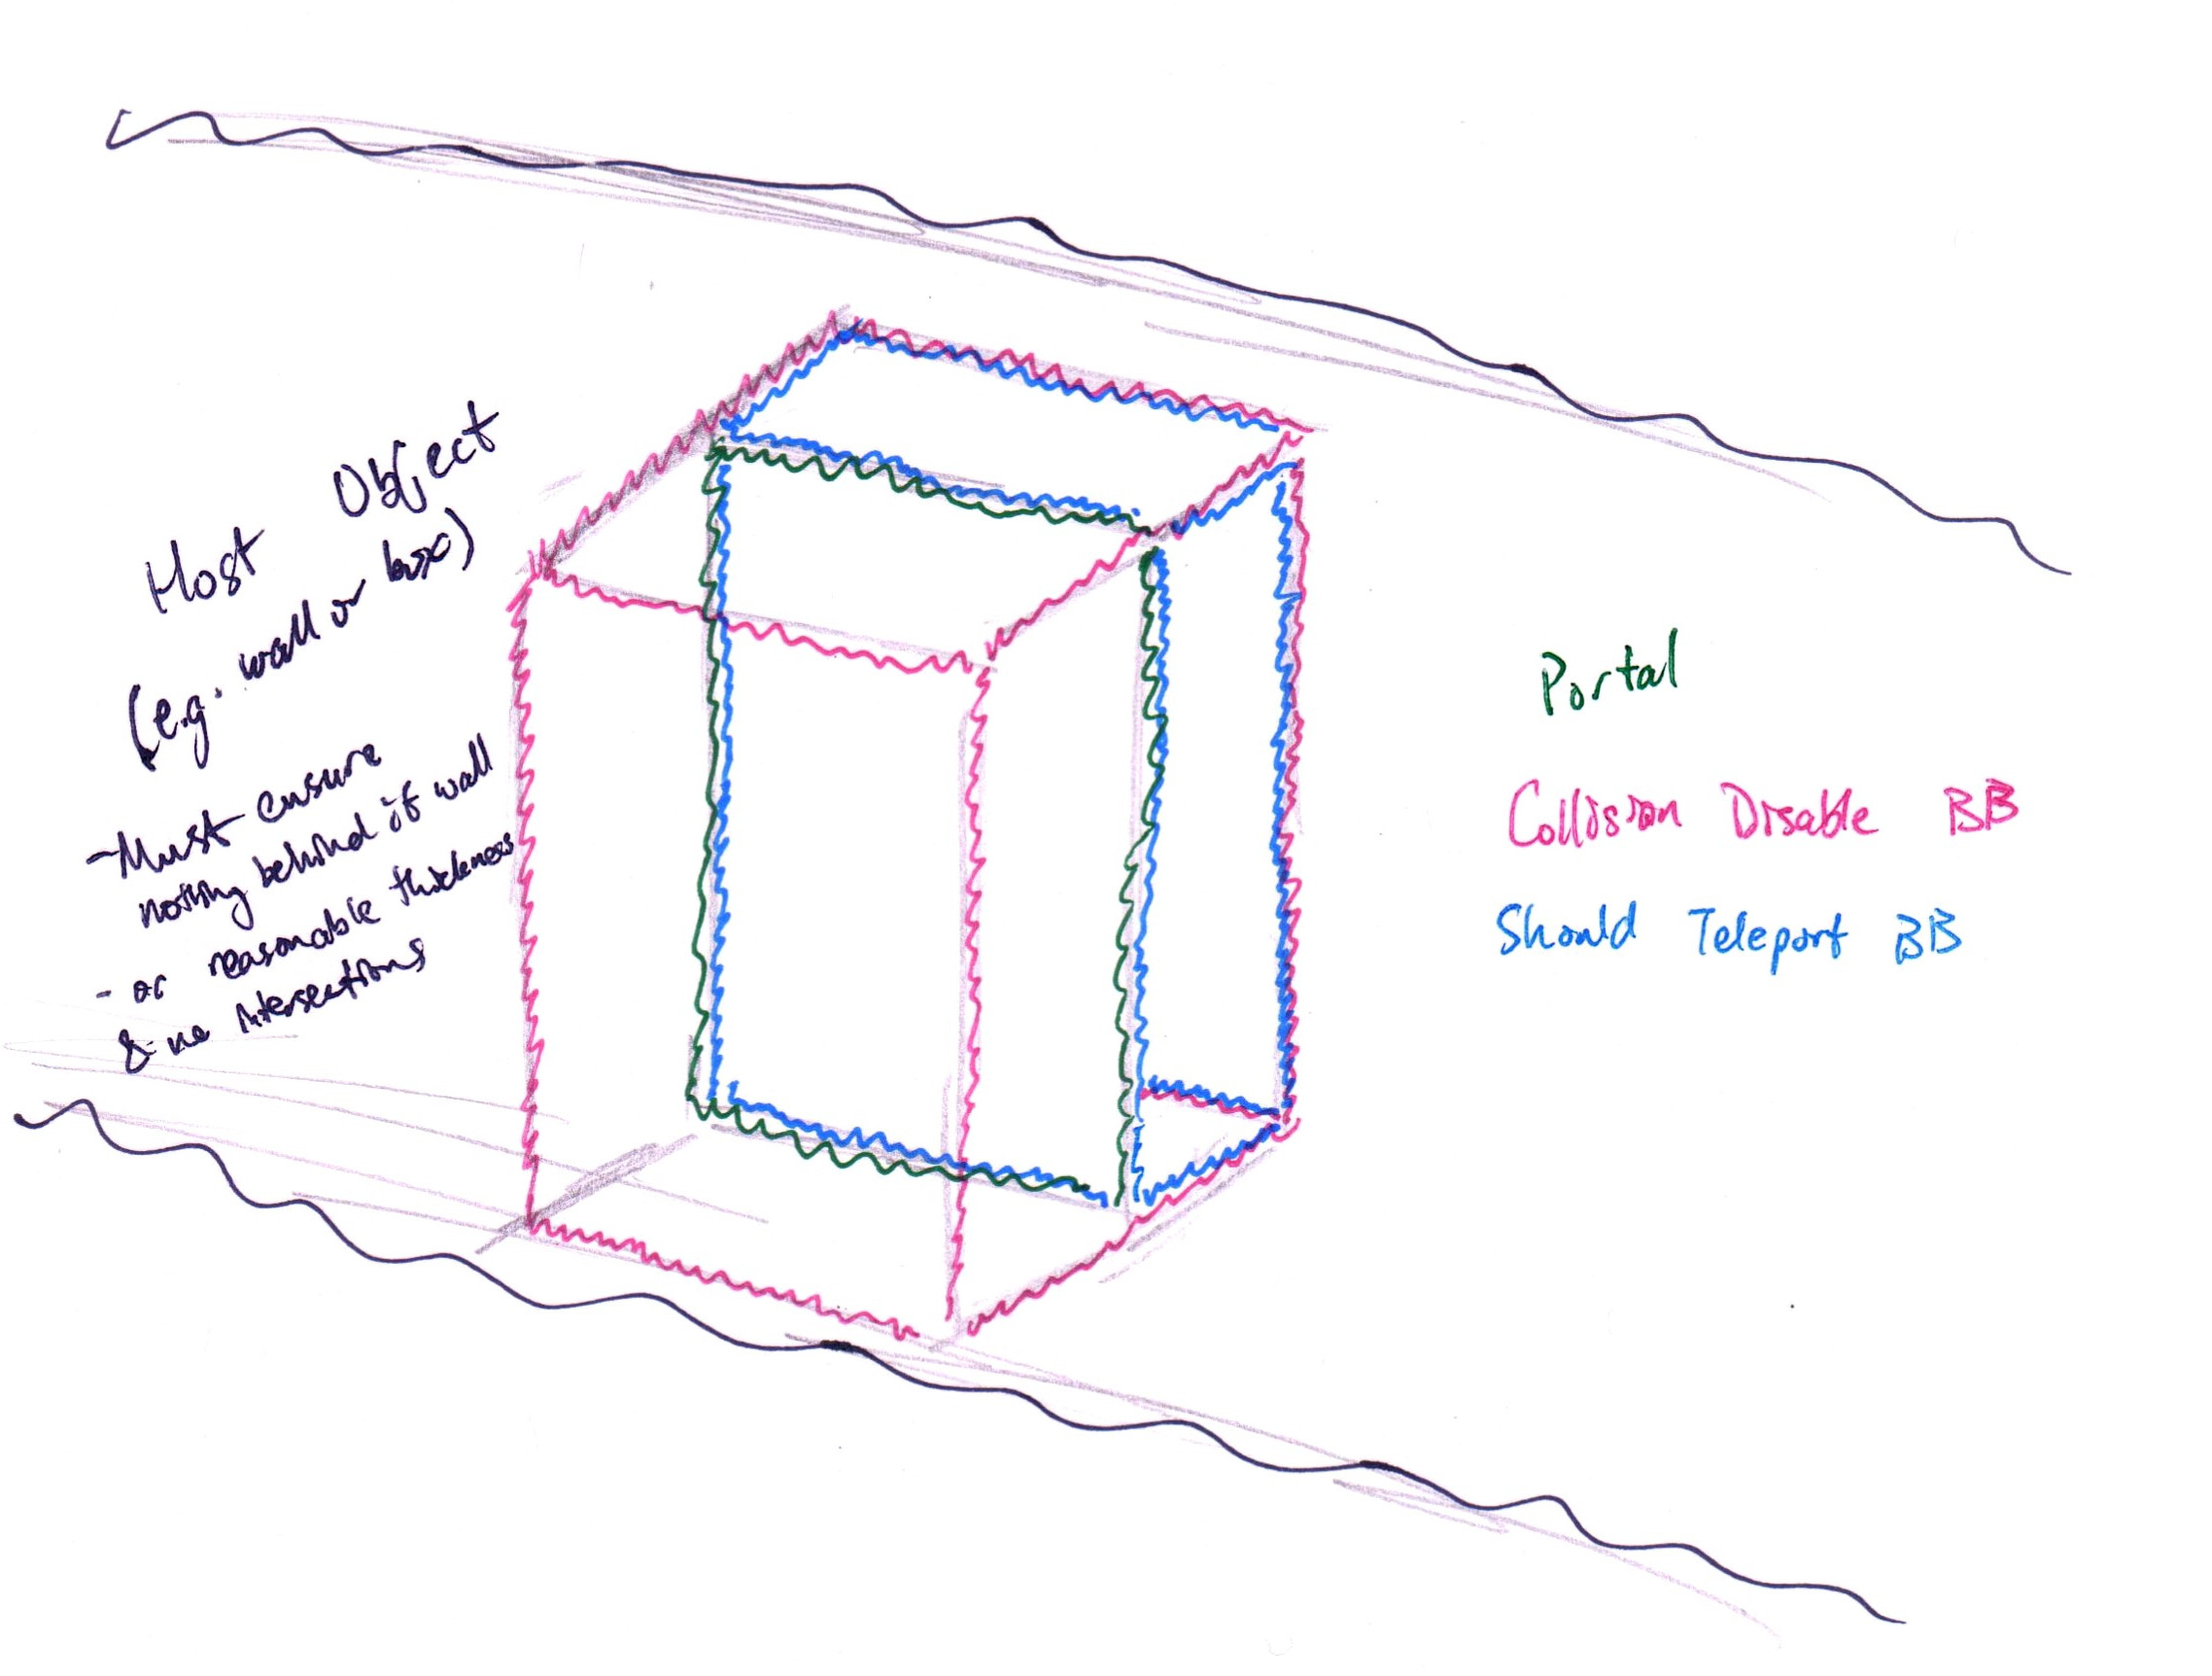 Host Object
(e.g. wall or box)
- Must ensure
nothing behind if wall
- or reasonable thickness
& no intersections
Portal
Collision Disable BB
Should Teleport BB